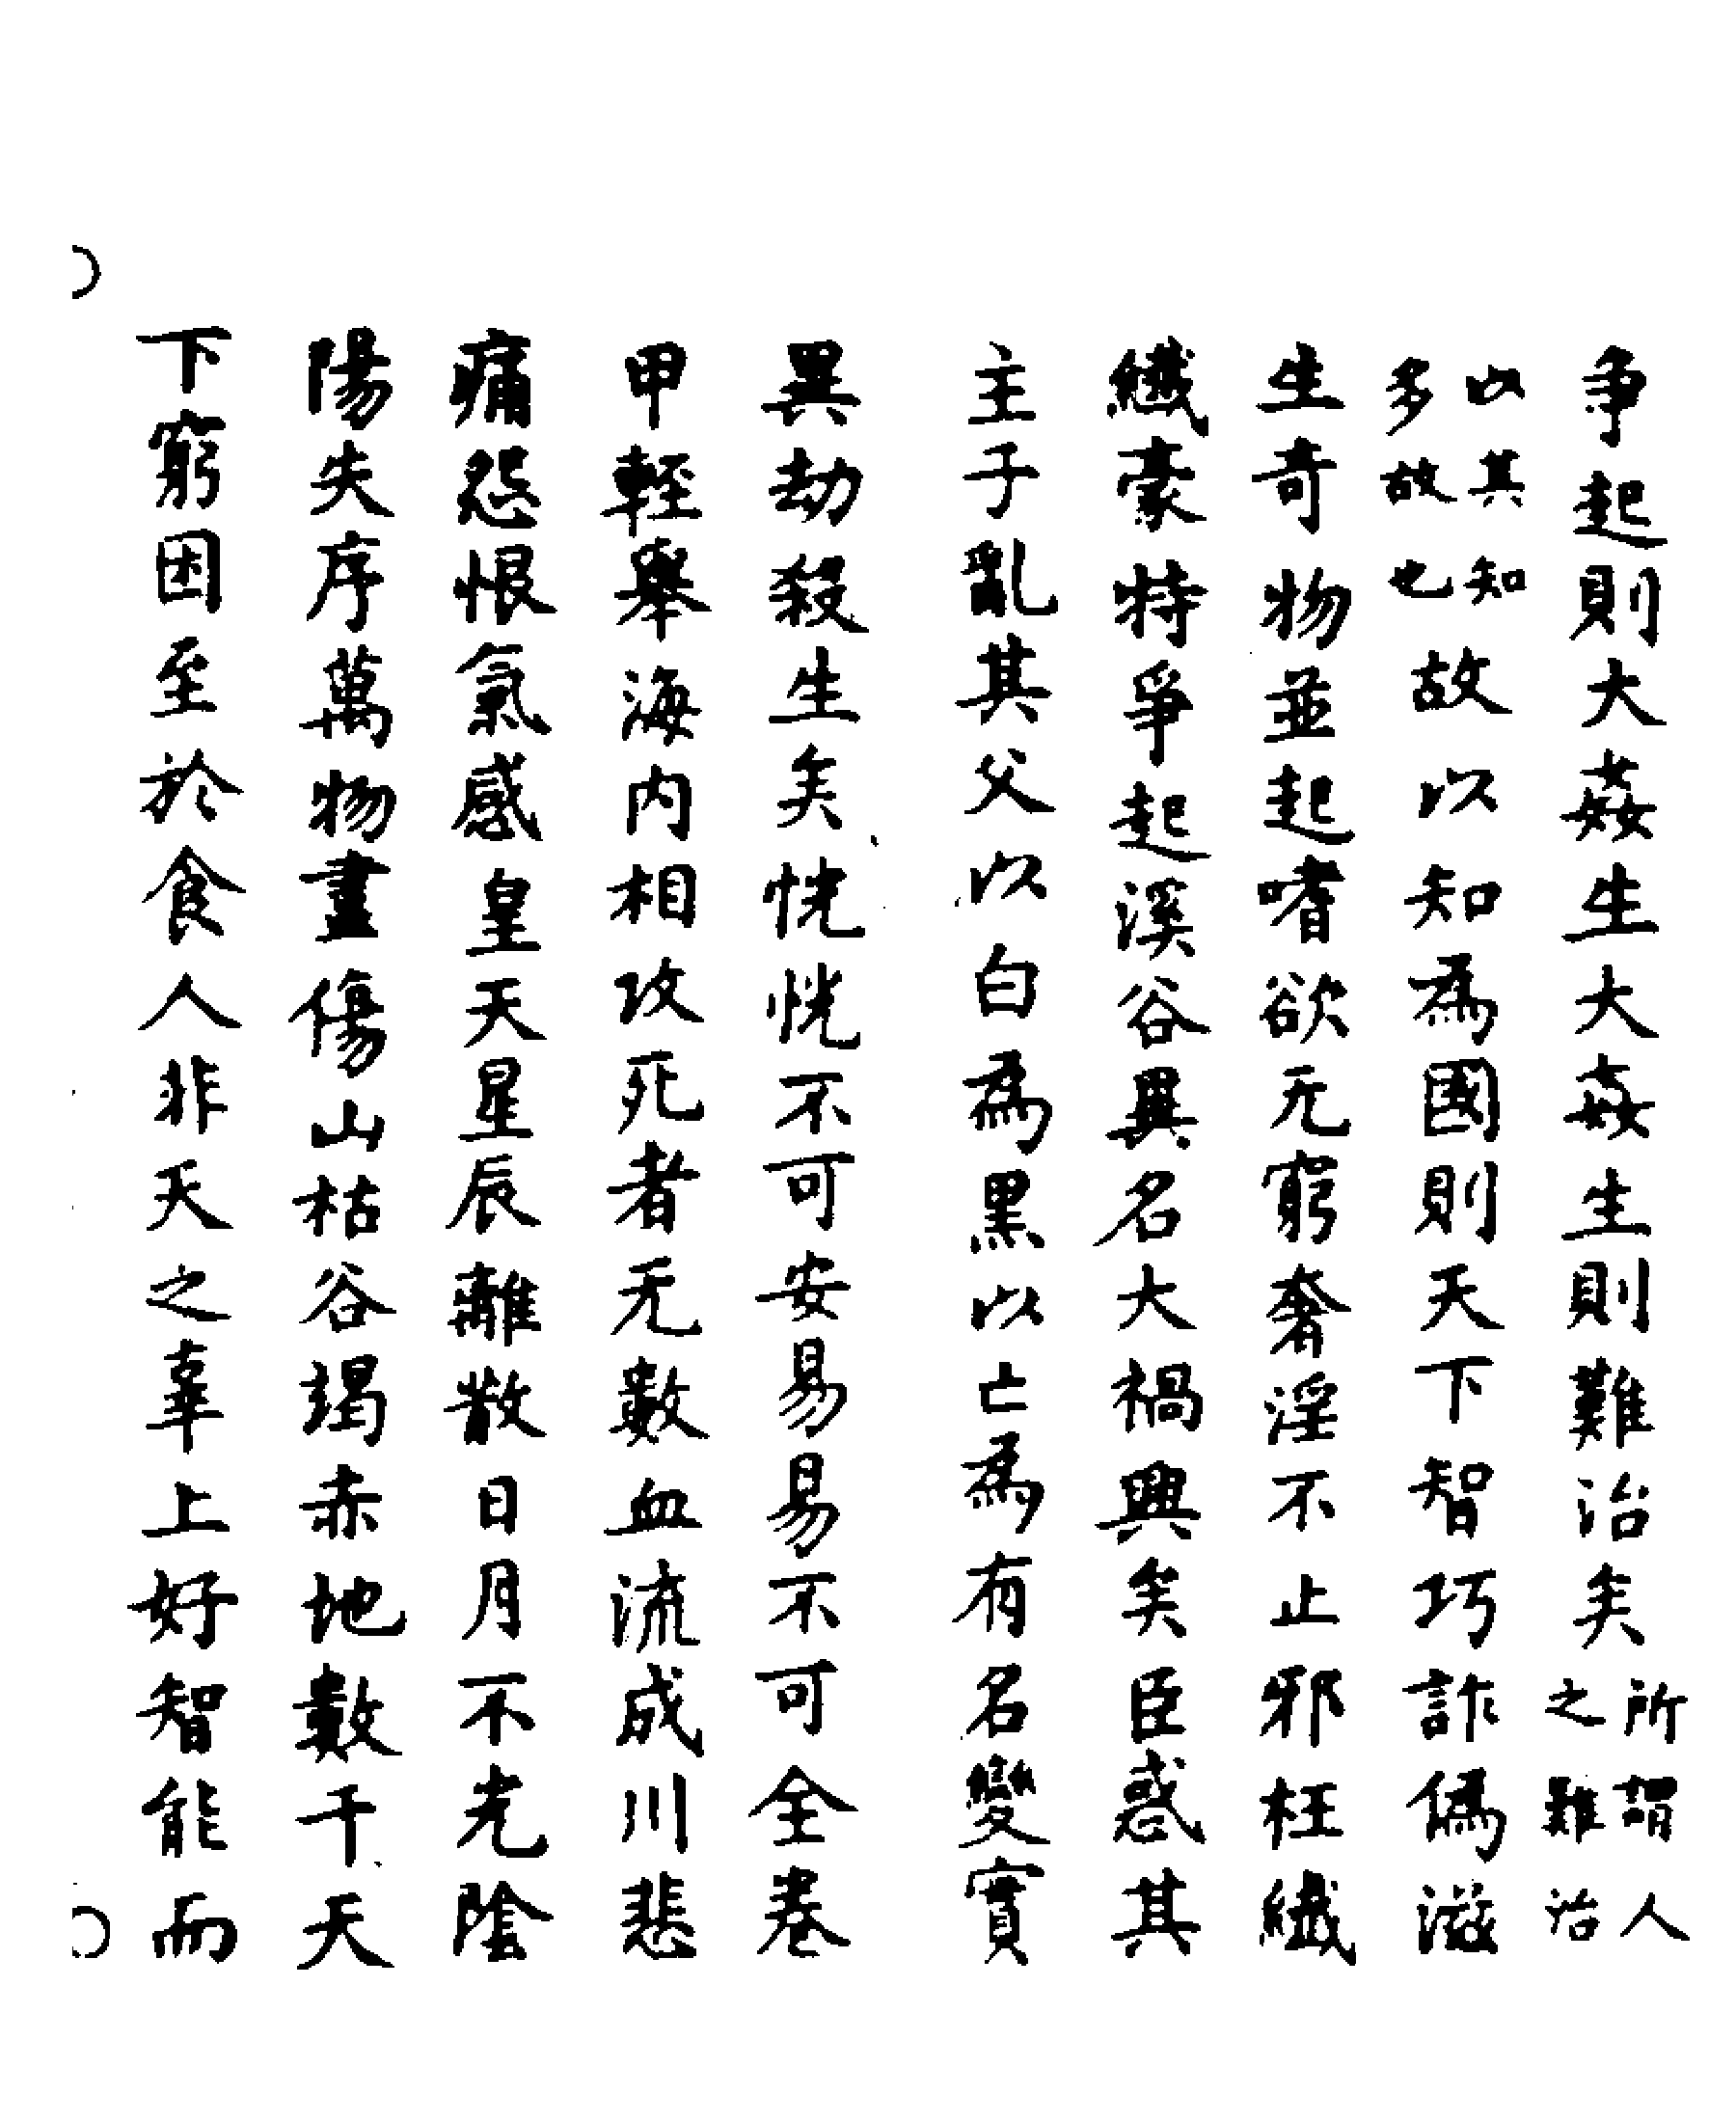 爭起則大姦生大姦生則難治矣所謂人之難治
以其知多故也故以知為國則天下智巧詐偽滋
生奇物並起嗜欲无窮奢淫不止邪枉纖
纖豪特爭起溪谷異名大禍興矣臣惑其
主子亂其父以白為黑以亡為有名變實
異劫殺生矣恍恍不可安易易不可全卷
甲輕舉海內相攻死者无數血流成川悲
痛怨恨氣感皇天星辰離散日月不光陰
陽失序萬物盡傷山枯谷竭赤地數千天
下窮困至於食人非天之辜上好智能而